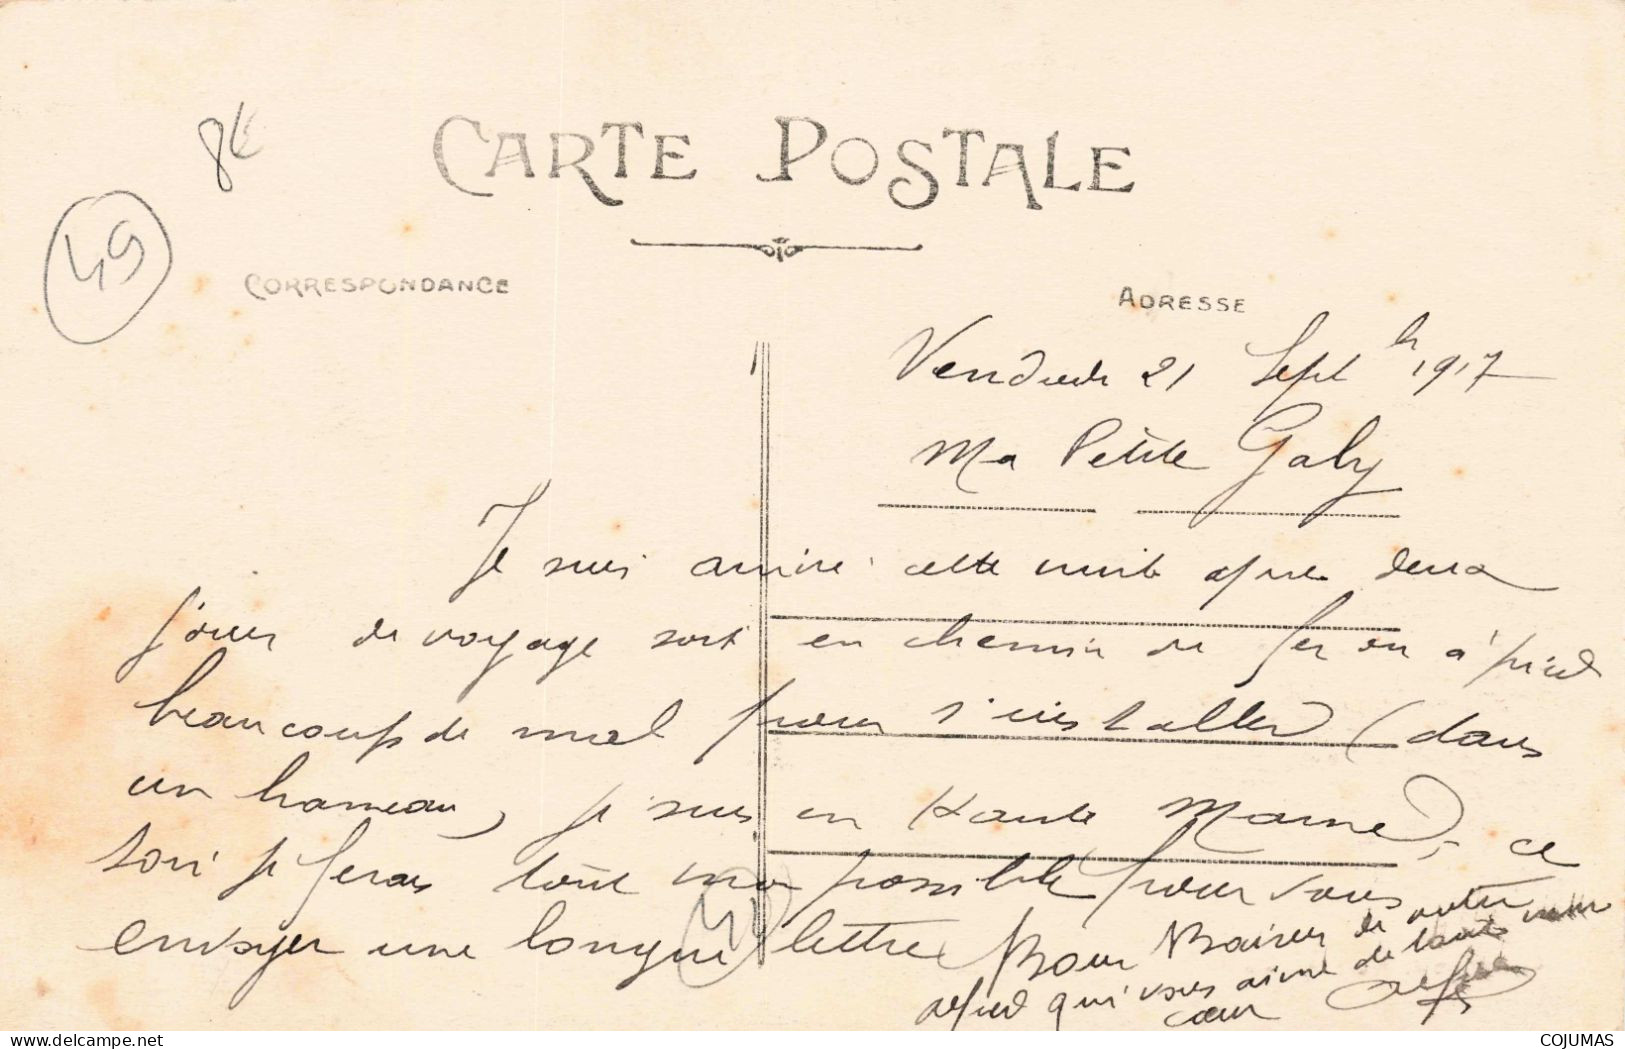 8€
CARTE POSTALE
49
CORRESPONDANCE
ADRESSE
Vendredi 21 Sept 1917
Ma Petite Gaby
Je suis arrivé cette nuit apres deux
jours de voyage soit en chemin de fer ou à pied
beaucoup de mal pour s'installer (dans
un hameau, je suis en Haute Marne), ce
soir je ferais tout mon possible pour vous
envoyer une longue lettre Bons Baisers de votre
alfred qui vous aime de tout son
cœur Alfred
COJUMAS